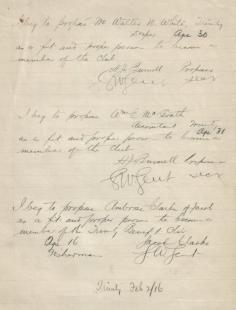 I beg to propose Mr Walter N. White, Trinity
Age 30
as a fit and proper person to become a
member of the Club
H J Burnell Proposer
S W Gent Secr
I beg to propose Wm E. McGrath
Accountant Trinity
Age 31
as a fit and proper person to become a
member of the Club
H J Burnell Proposer
S W Gent Secr
I beg to propose Ambrose Clarke of Jacob
as a fit and proper person to become a
member of the Trinity Benefit Club
Age 16 Jacob Clarke
Fisherman S W Gent
Trinity Feb 2/16